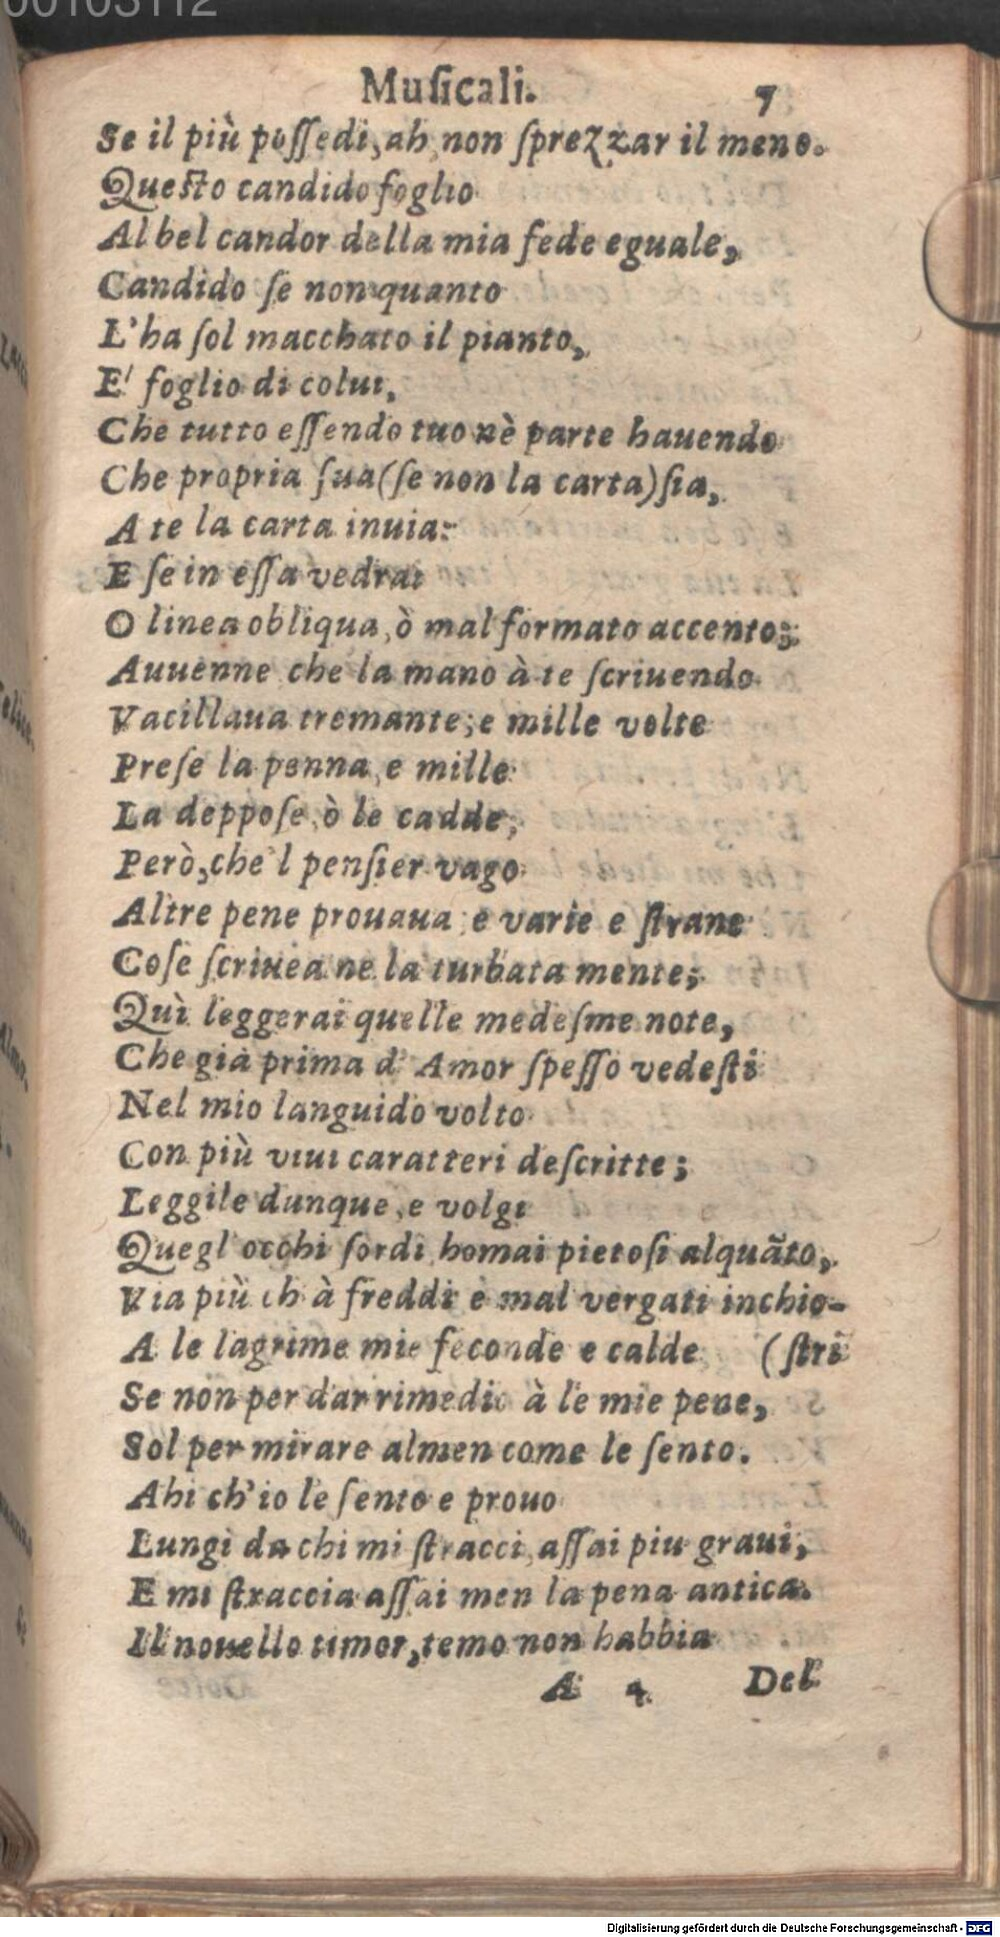 00103112
Muſicali. 7
Se il più poſſedi, ah, non ſprezzar il meno.
Queſto candido foglio
Al bel candor della mia fede eguale,
Candido ſe non quanto
L'ha ſol macchato il pianto,
E' foglio di colui,
Che tutto eſſendo tuo nè parte hauendo
Che propria ſua (ſe non la carta) ſia,
A te la carta inuia:
E ſe in eſſa vedrai
O linea obliqua, ò mal formato accento;
Auuenne che la mano à te ſcriuendo
Vacillaua tremante; e mille volte
Preſe la penna, e mille
La deppoſe, ò le cadde;
Però, che 'l penſier vago
Altre pene prouaua, e varie e ſtrane
Coſe ſcriuea ne la turbata mente;
Quì leggerai quelle medeſme note,
Che già prima d' Amor ſpeſſo vedeſti
Nel mio languido volto
Con più viui caratteri deſcritte;
Leggile dunque, e volgi
Quegl' occhi ſordi homai pietoſi alquãto,
Via più ch' à freddi e mal vergati inchio-
A le lagrime mie feconde e calde (ſtri
Se non per dar rimedio à le mie pene,
Sol per mirare almen come le ſento.
Ahi ch'io le ſento e prouo
Lungi da chi mi ſtracci, aſſai piu graui,
E mi ſtraccia aſſai men la pena antica.
Il nouello timor, temo non habbia
A 4 Del
Digitalisierung gefördert durch die Deutsche Forschungsgemeinschaft - DFG